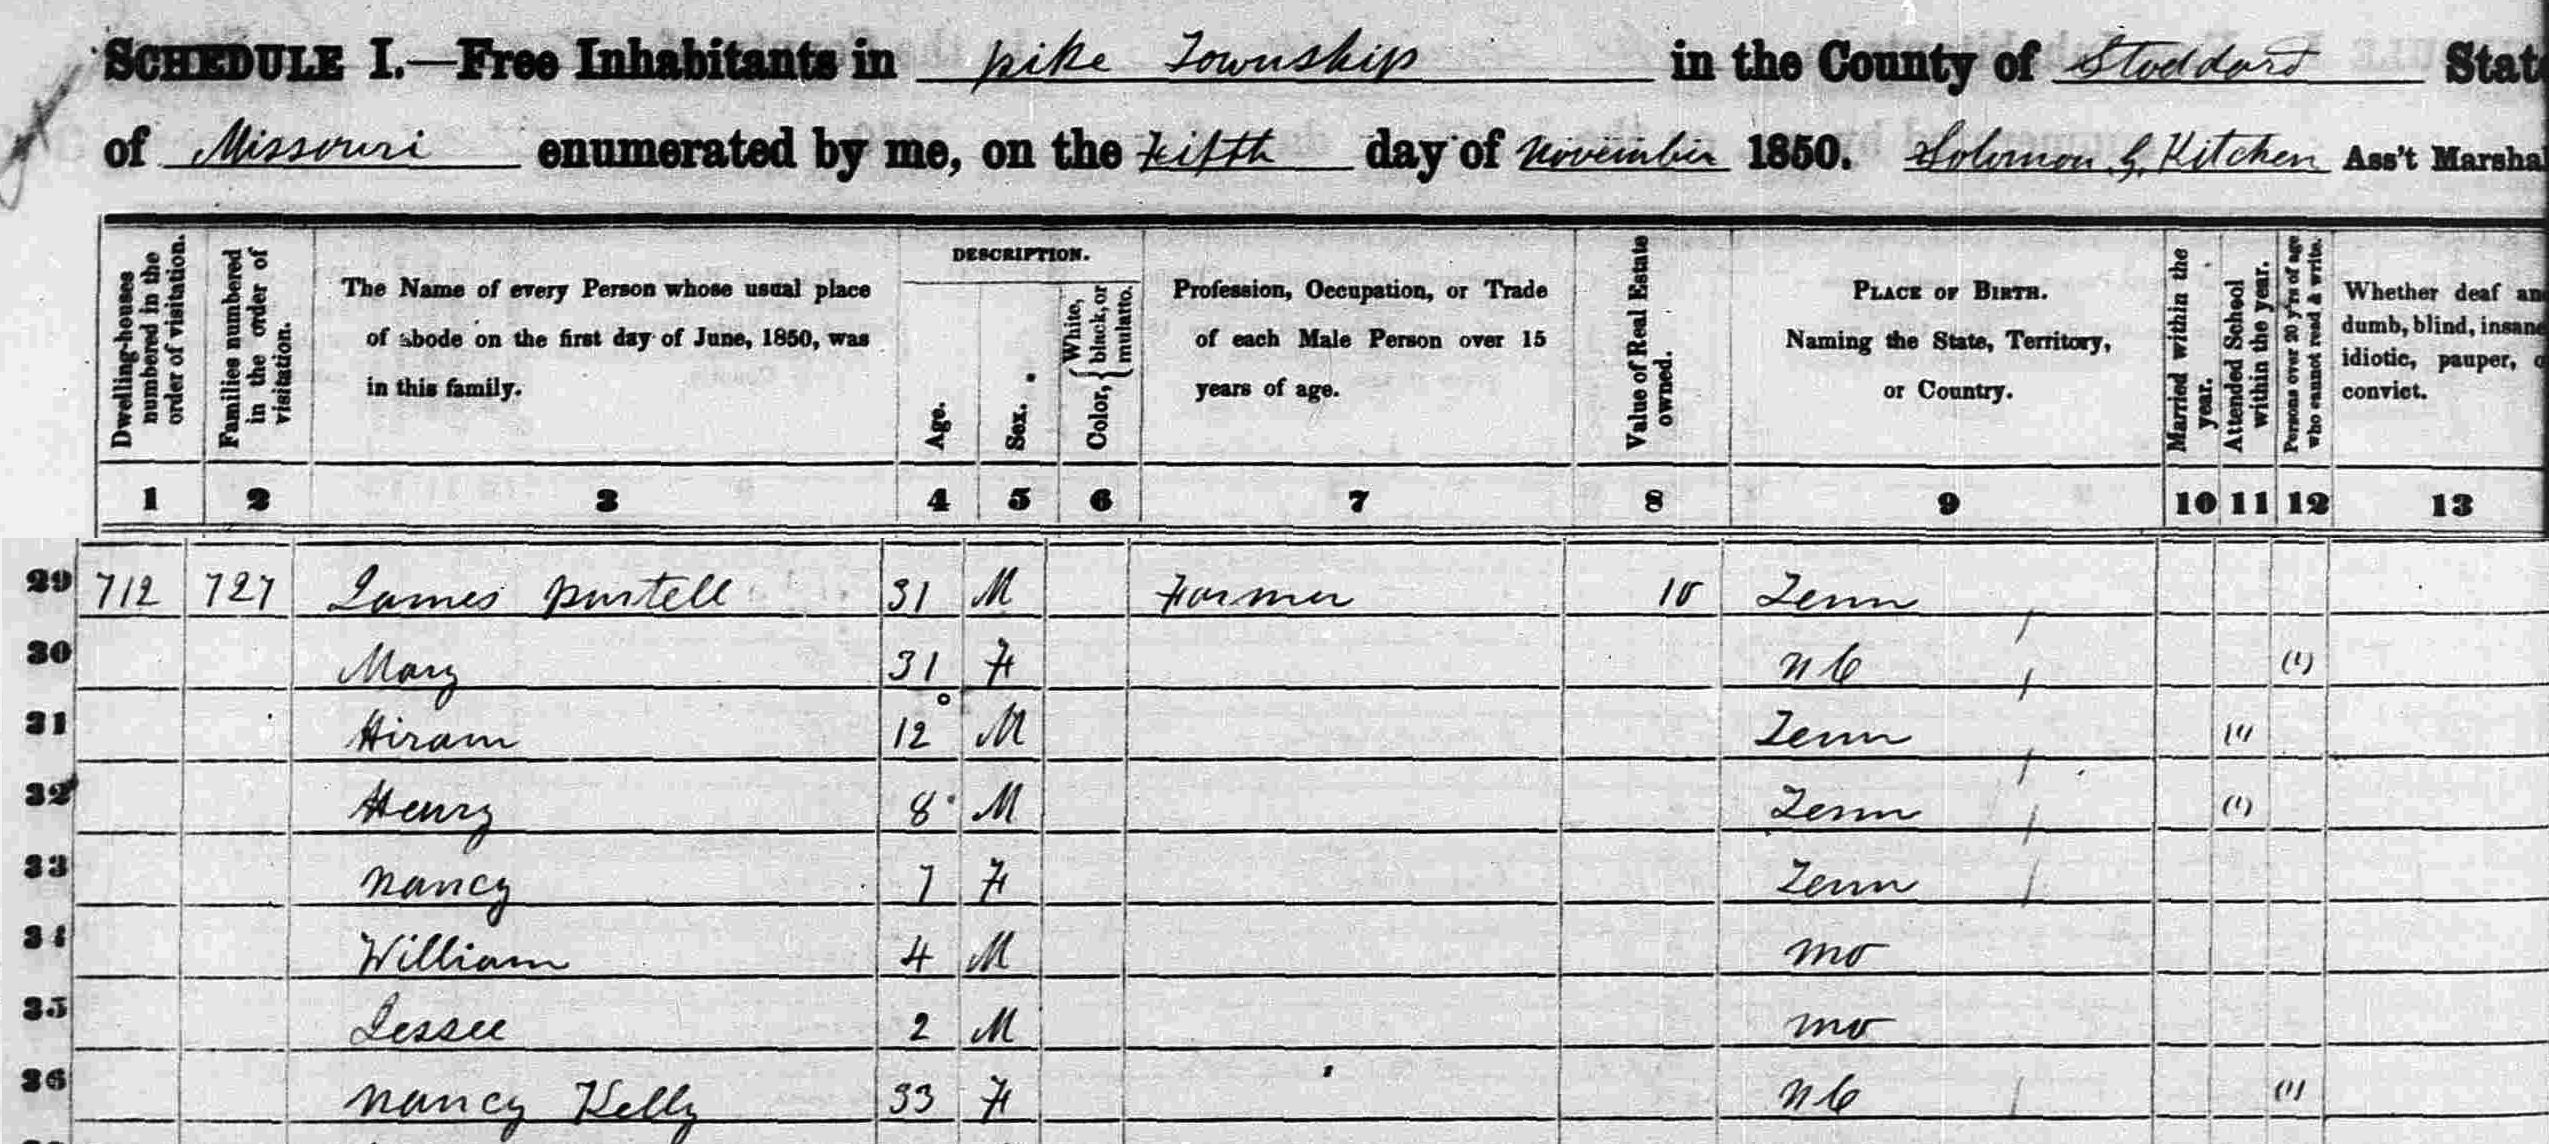 SCHEDULE I.—Free Inhabitants in pike Township in the County of Stoddard State
of Missouri enumerated by me, on the Fifth day of November 1850. Solomon G. Kitchen Ass't Marshal
Dwelling-houses numbered in the order of visitation.
Families numbered in the order of visitation.
The Name of every Person whose usual place of abode on the first day of June, 1850, was in this family.
DESCRIPTION.
Age.
Sex.
Color, { White, black, or mulatto.
Profession, Occupation, or Trade of each Male Person over 15 years of age.
Value of Real Estate owned.
PLACE OF BIRTH. Naming the State, Territory, or Country.
Married within the year.
Attended School within the year.
Persons over 20 y'rs of age who cannot read & write.
Whether deaf and dumb, blind, insane, idiotic, pauper, or convict.
1 2 3 4 5 6 7 8 9 10 11 12 13
29 712 727 James purtell 31 M Farmer Tenn
30 Mary 31 F N C (1)
31 Hiram 12 M Tenn (1)
32 Henry 8 M Tenn (1)
33 Nancy 7 F Tenn
34 William 4 M Mo
35 Jessee 2 M Mo
36 Nancy Kelly 33 F N C (1)